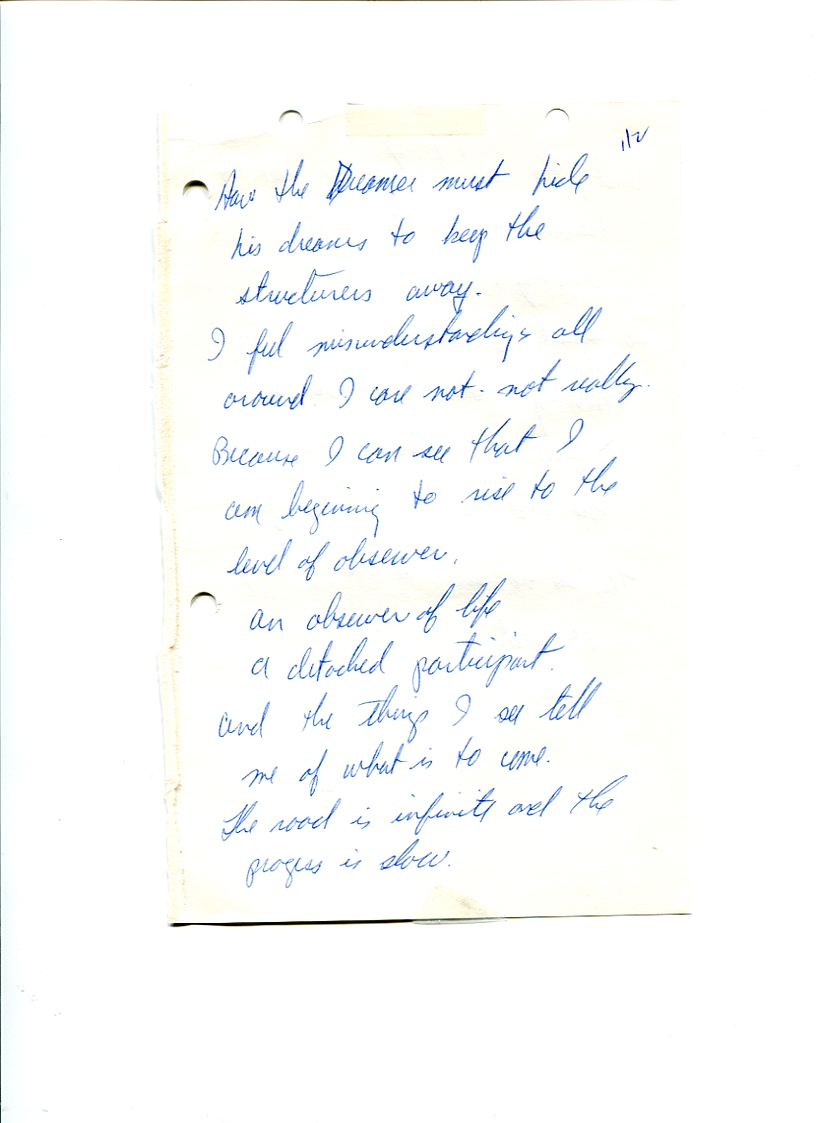 1/2
How the Dreamer must hide
his dreams to keep the
structurers away.
I feel misunderstandings all
around I care not - not really.
Because I can see that I
am begining to rise to the
level of observer.
an observer of life
a detached participant.
and the things I see tell
me of what is to come.
The road is infinite and the
progress is slow.